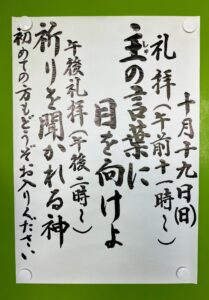 十月十九日(日)
礼拝(午前十一時〜)
主の言葉に
しゅ
目を向けよ
午後礼拝(午後二時〜)
祈りを聞かれる神
初めての方もどうぞお入りください